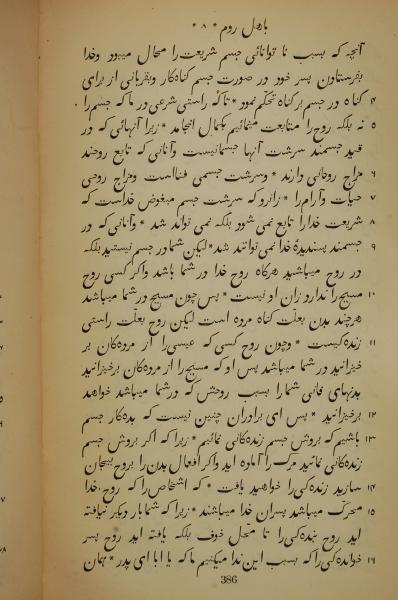 باهل روم * ۸ *
آنچه که بسبب نا توانائی جسم شریعت را محال میبود وخدا
بفرستادن پسر خود در صورت جسم گناه‌کار وبقربانی از برای
۴ گناه در جسم بر گناه تحکّم نمود * تا که راستی شرعی در ما که جسم را
۵ نه بلکه روح را متابعت مینمائیم بکمال انجامد * زیرا آنهائی که در
قید جسمند سرشت آنها جسمانیست وآنانی که تابع روحند
۶ مزاج روحانی دارند * وسرشت جسمی فنااست ومزاج روحی
۷ حیات وآرام را * زانرو که سرشت جسم مبغوض خداست که
۸ شریعت خدارا تابع نمی شود بلکه نمی تواند شد * وآنانی که در
۹ جسمند پسندیدهٔ خدا نمی توانند شد * لیکن شما در جسم نیستید بلکه
در روح میباشید هرگاه روح خدا در شما باشد واگر کسی روح
۱۰ مسیح را ندارد زان او نیست * پس چون مسیح در شما میباشد
هرچند بدن بعلّت گناه مرده است لیکن روح بعلّت راستی
۱۱ زنده‌کیست * وچون روح کسی که عیسی را از مرده‌کان بر
خیزانید در شما میباشد پس او که مسیح را از مرده‌کان برخیزانید
بدنهای فانی شمارا بسبب روحش که در شما میباشد خواهد
۱۲ برخیزانید * پس ای برادران چنین نیست که بده‌کار جسم
۱۳ باشیم که بروش جسم زنده‌کانی نمائیم * زیرا که اگر بروش جسم
زنده‌کانی نمائید مرک را آماده اید واگر افعال بدن را بروح بیجان
۱۴ سازید زنده‌کی را خواهید یافت * که اشخاص را که روح خدا
۱۵ محرک میباشد پسران خدا میباشند * زیرا که شما بار دیکر نیافته
اید روح بنده‌کی را تا محل خوف بلکه یافته اید روح پسر
۱۶ خوانده‌کی را که بسبب این ندا میکنیم ما که یا ابا ای پدر * همان
386